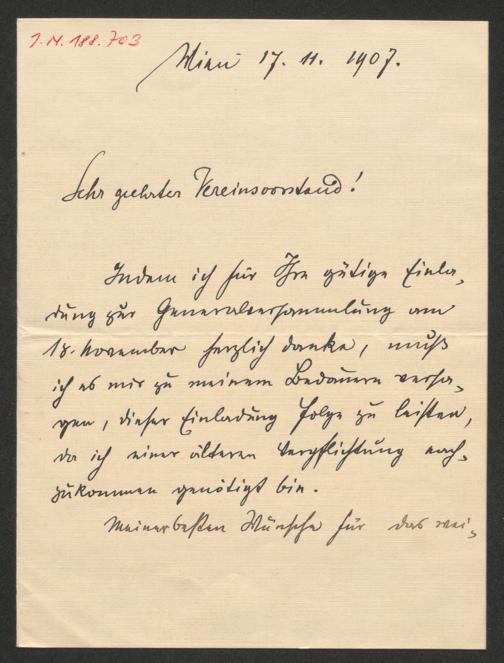 J.N. 188.703
Wien 17. 11. 1907.
Sehr geehrter Vereinsvorstand!
Indem ich für Ihre gütige Einla-
dung zur Generalversammlung am
18. November herzlich danke, muß
ich es mir zu meinem Bedauern versa-
gen, dieser Einladung folge zu leisten,
da ich einer älteren Verpflichtung nach-
zukommen genötigt bin.
Meine besten Wünsche für das wei-